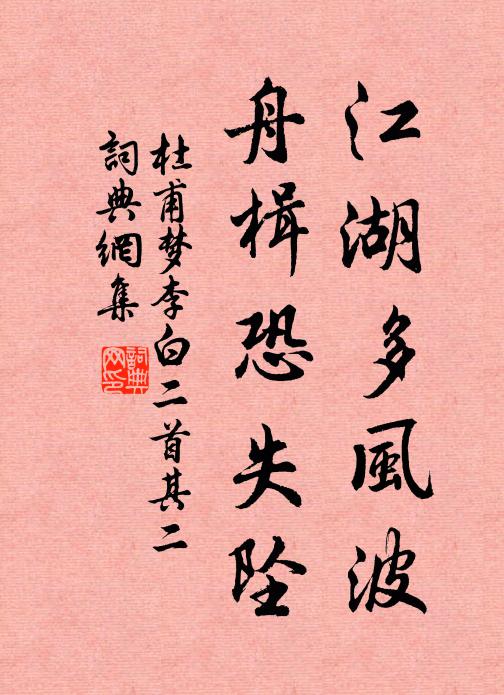 江湖多風波
舟楫恐失墜
杜甫梦李白二首其二
詞典網集
詞典
网印